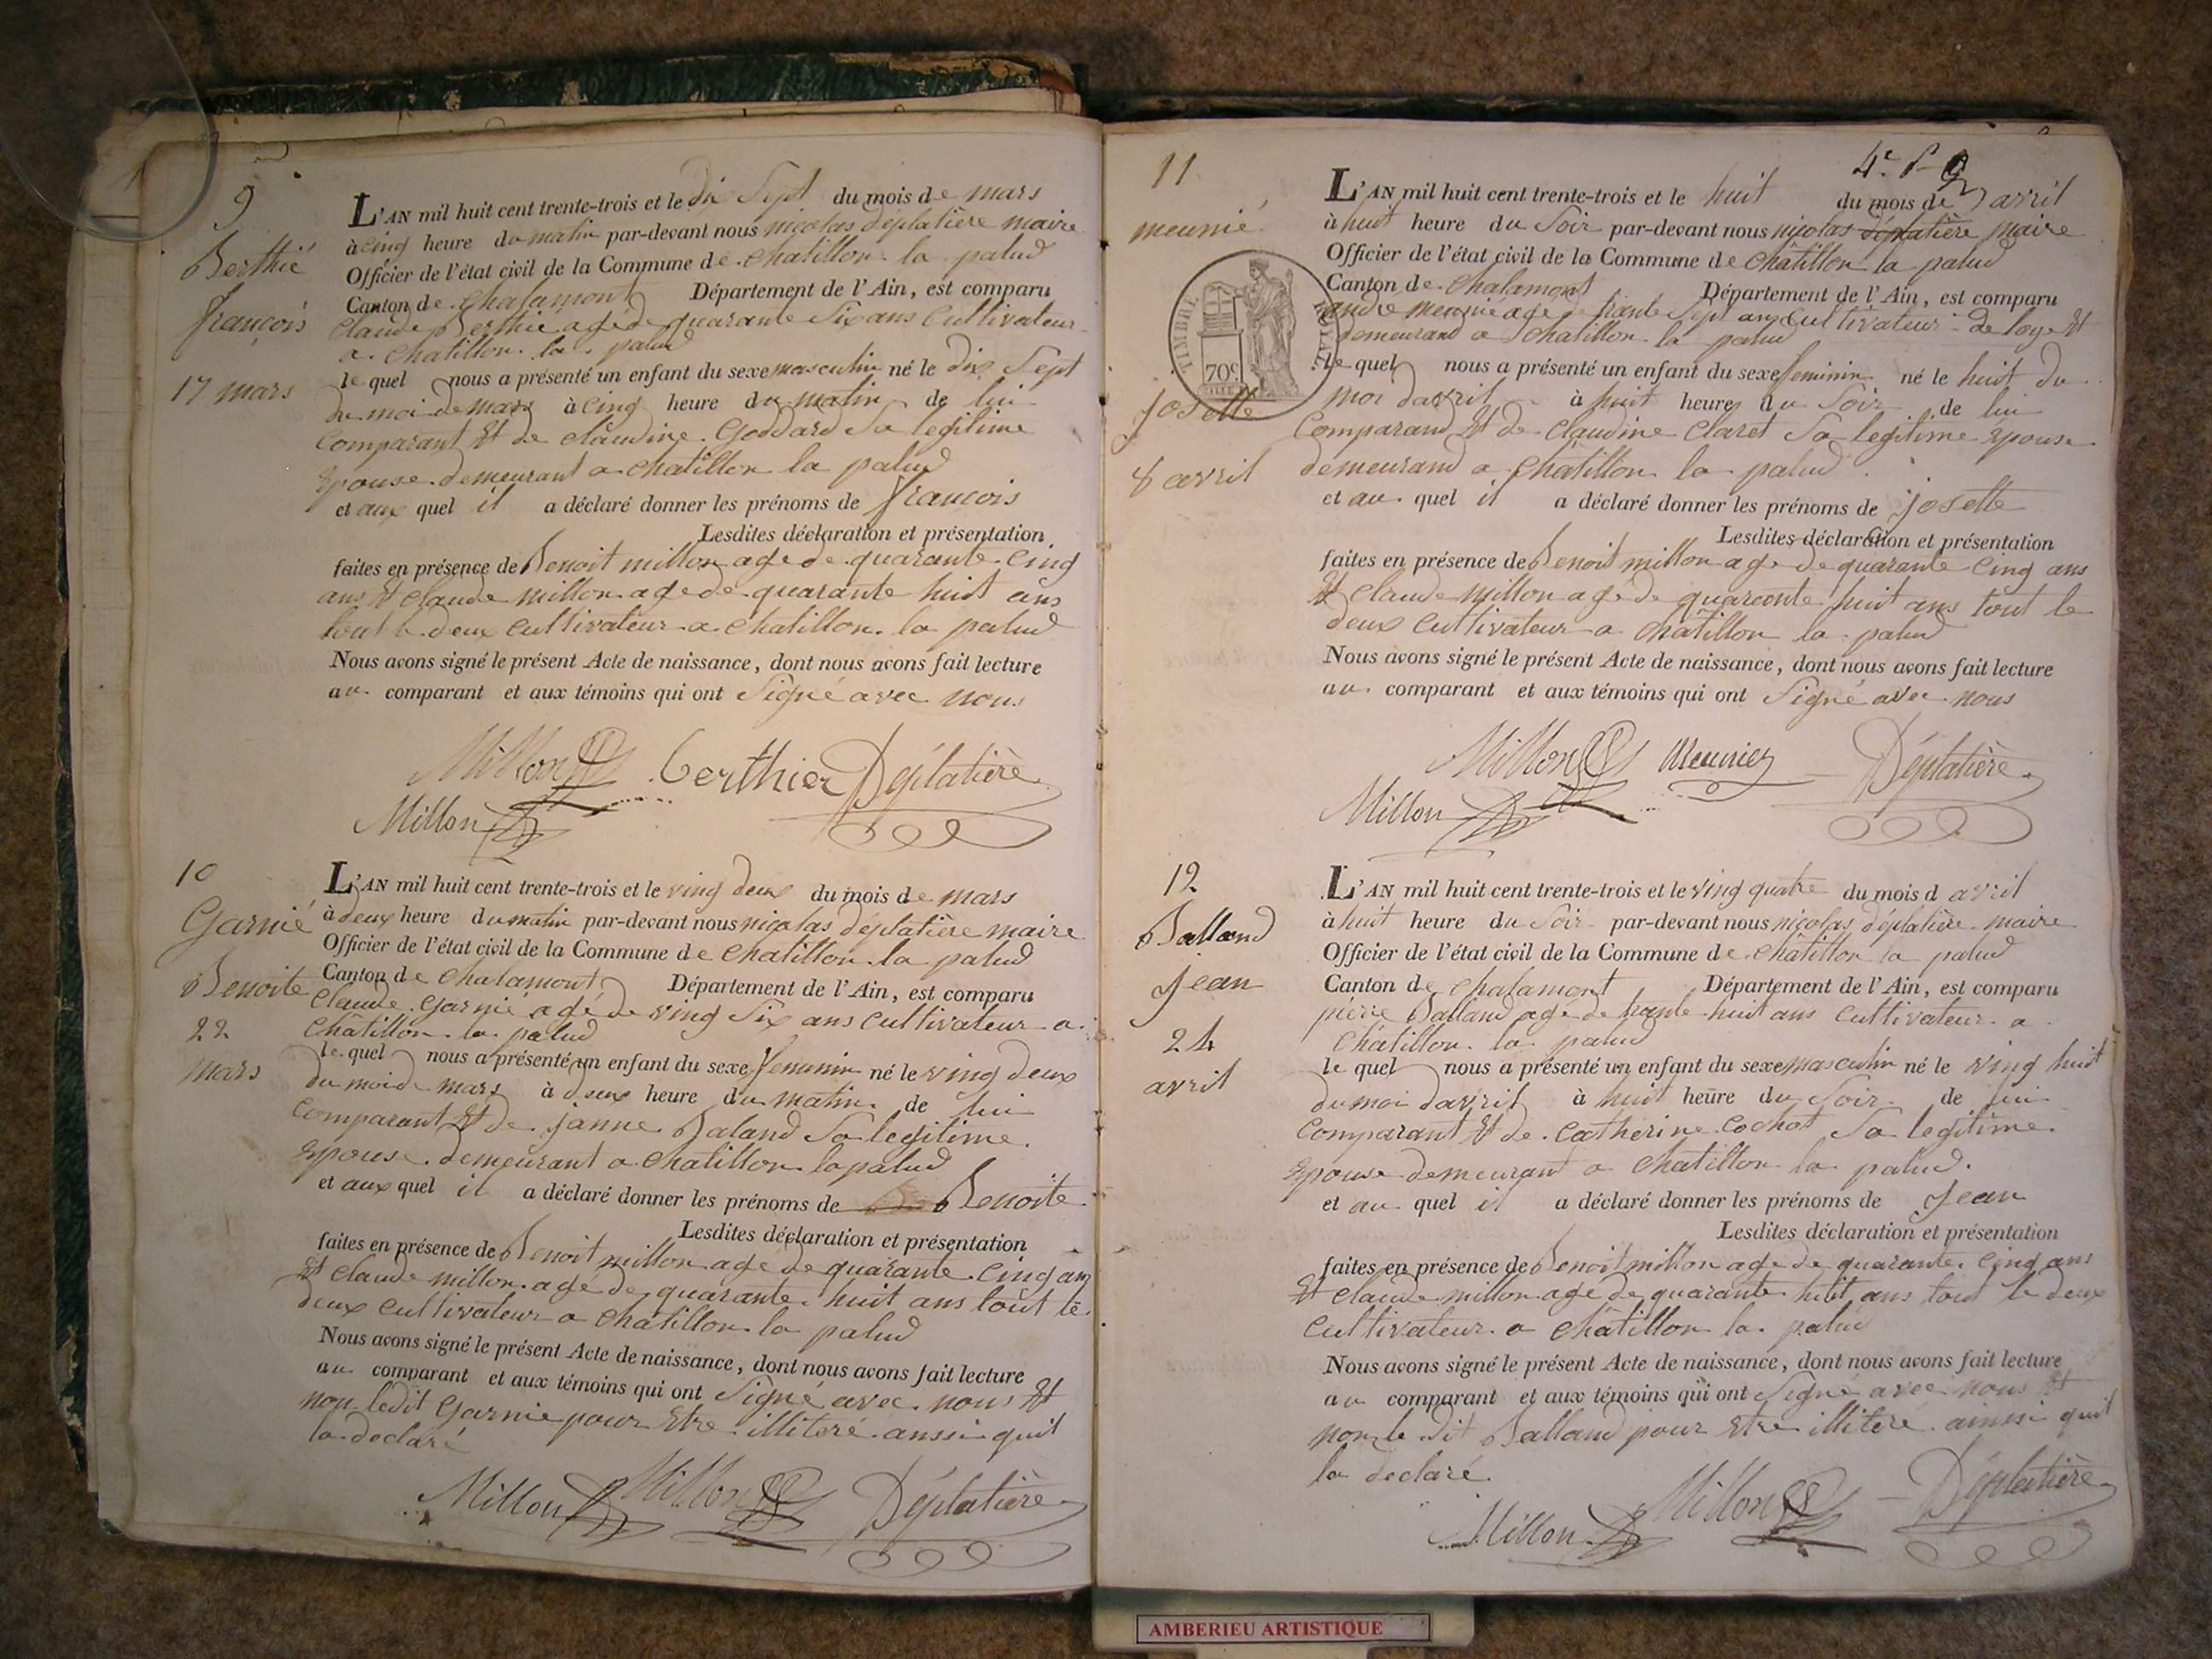 9
Berthié
françois
17 mars
L'AN mil huit cent trente-trois et le dix Sept du mois de mars
à cinq heure du matin par-devant nous nicolas déplatière maire
Officier de l'état civil de la Commune de chatillon la palud
Canton de chalamont Département de l'Ain, est comparu
claude Berthié agé de quarante Six ans Cultivateur
a chatillon la palud
le quel nous a présenté un enfant du sexe masculin né le dix Sept
du moi de mars à cinq heure du matin de lui
comparant Et de claudine Goddard Sa legitime
Epouse demeurant a chatillon la palud
et aux quel il a déclaré donner les prénoms de françois
Lesdites déclaration et présentation
faites en présence de Benoit millon age de quarante Cinq
ans Et Claude millon age de quarante huit ans
tout le deux Cultivateur a chatillon la palud
Nous avons signé le présent Acte de naissance, dont nous avons fait lecture
au comparant et aux témoins qui ont Signé avec nous
Millon berthier Déplatière
Millon
10
Garnié
Benoite
22
mars
L'AN mil huit cent trente-trois et le ving deux du mois de mars
à deux heure du matin par-devant nous nicolas déplatière maire
Officier de l'état civil de la Commune de chatillon la palud
Canton de chalamont Département de l'Ain, est comparu
Claude Garnié agé de ving Six ans Cultivateur a
Châtillon la palud
le quel nous a présenté un enfant du sexe femenin né le ving deux
du moi de mars à deux heure du matin de lui
comparant Et de janne Baland Sa legitime
Epouse demeurant a chatillon la palud
et aux quel il a déclaré donner les prénoms de Benoite
Lesdites déclaration et présentation
faites en présence de Benoit millon agé de quarante Cinq ans
Et claude millon agé de quarante huit ans tout le
deux Cultivateur a chatillon la palud
Nous avons signé le présent Acte de naissance, dont nous avons fait lecture
au comparant et aux témoins qui ont Signé avec nous Et
non ledit Garnié pour Etre illiteré aussi quil
la declaré
Millon Millon Déplatière
4e f
11
meunié
josette
8 avril
TIMBRE ROYAL
70c
L'AN mil huit cent trente-trois et le huit du mois de avril
à huit heure du Soir par-devant nous nicolas déplatière maire
Officier de l'état civil de la Commune de Châtillon la palud
Canton de chalamont Département de l'Ain, est comparu
andré meunié agé de trante Sept ans Cultivateur de loye Et
demeurand a chatillon la palud
le quel nous a présenté un enfant du sexe feminin né le huit du
moi davril à huit heure du Soir de lui
Comparand Et de Claudine Claret Sa legitime Epouse
demeurand a châtillon la palud
et au quel il a déclaré donner les prénoms de josette
Lesdites déclaration et présentation
faites en présence de Benoit millon age de quarante Cinq ans
Et Claude millon agé de quarante huit ans tout le
deux Cultivateur a châtillon la palud
Nous avons signé le présent Acte de naissance, dont nous avons fait lecture
au comparant et aux témoins qui ont Signé avec nous
Millon Meunier Déplatière
Millon
12
Balland
Jean
24
avril
L'AN mil huit cent trente-trois et le ving quatre du mois d avril
à huit heure du Soir par-devant nous nicolas déplatière maire
Officier de l'état civil de la Commune de châtillon la palud
Canton de chalamont Département de l'Ain, est comparu
pierre Balland age de trante huit ans Cultivateur a
Châtillon la palud
le quel nous a présenté un enfant du sexe masculin né le ving huit
du moi davril à huit heure du Soir de lui
comparant Et de Catherine Cochot Sa legitime
Epouse demeurant a chatillon la palud.
et au quel il a déclaré donner les prénoms de Jean
Lesdites déclaration et présentation
faites en présence de Benoit millon age de quarante Cinq ans
Et Claude millon agé de quarante huit ans tout le deux
Cultivateur a châtillon la palud
Nous avons signé le présent Acte de naissance, dont nous avons fait lecture
au comparant et aux témoins qui ont Signé avec nous Et
non le dit Balland pour Etre illiteré ainssi quil
la declaré
Millon Millon Déplatière
AMBERIEU ARTISTIQUE